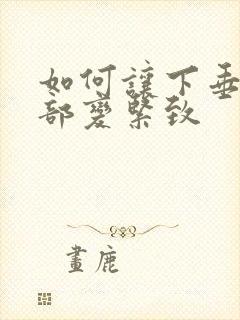 如何讓下垂
部變緊致
畫鹿